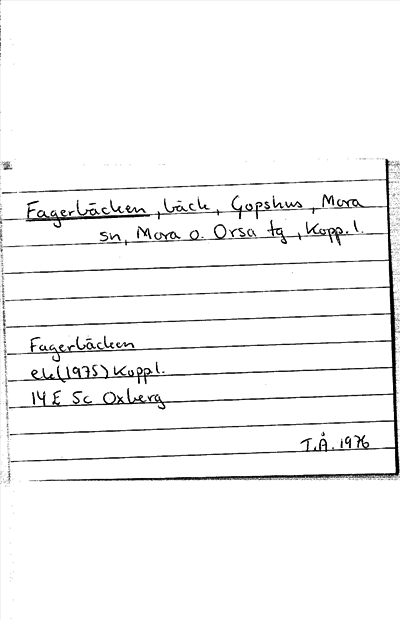 Fagerbäcken, bäck, Gopshus, Mora
sn, Mora o. Orsa tg, Kopp. l.
Fagerbäcken
ek (1975) Kopp l.
14E 5c Oxberg
T.Å. 1976